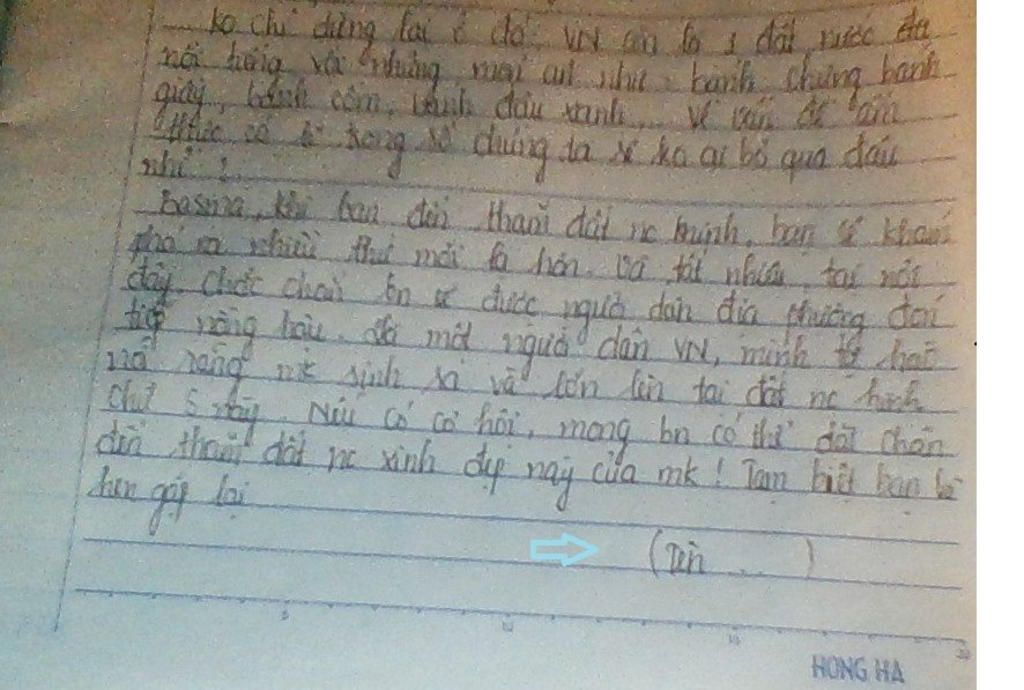 ko chỉ dừng lại ở đó, VN còn là 1 đất nước đã
nổi tiếng với những món ăn như: bánh chưng bánh
giầy, bánh cốm, bánh đậu xanh,... Về vấn đề ẩm
thực có lẽ trong số chúng ta sẽ ko ai bỏ qua đâu
nhỉ?
Basma, khi bạn đến thăm đất nc mình, bạn sẽ khám
phá ra nhiều thứ mới lạ hơn. Và tất nhiên, tại nơi
đây chắc chắn bn sẽ được người dân địa phương đón
tiếp nồng hậu. Là một người dân VN, mình tự hào
rằng mk sinh ra và lớn lên tại đất nc hình
chữ S này. Nếu có cơ hội, mong bn có thể đặt chân
đến thăm đất nc xinh đẹp này của mk! Tạm biệt bạn và
hẹn gặp lại
(Tên ... )
5 10 15 20
HONG HA